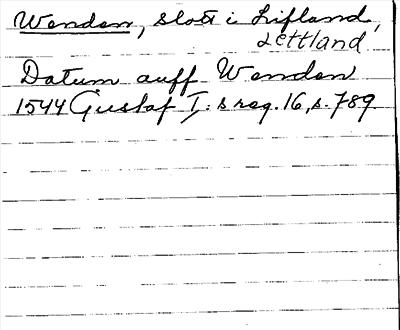 Wenden, slott i Lifland,
Lettland
Datum auff Wenden
1544 Gustaf I:s reg. 16, s. 789.